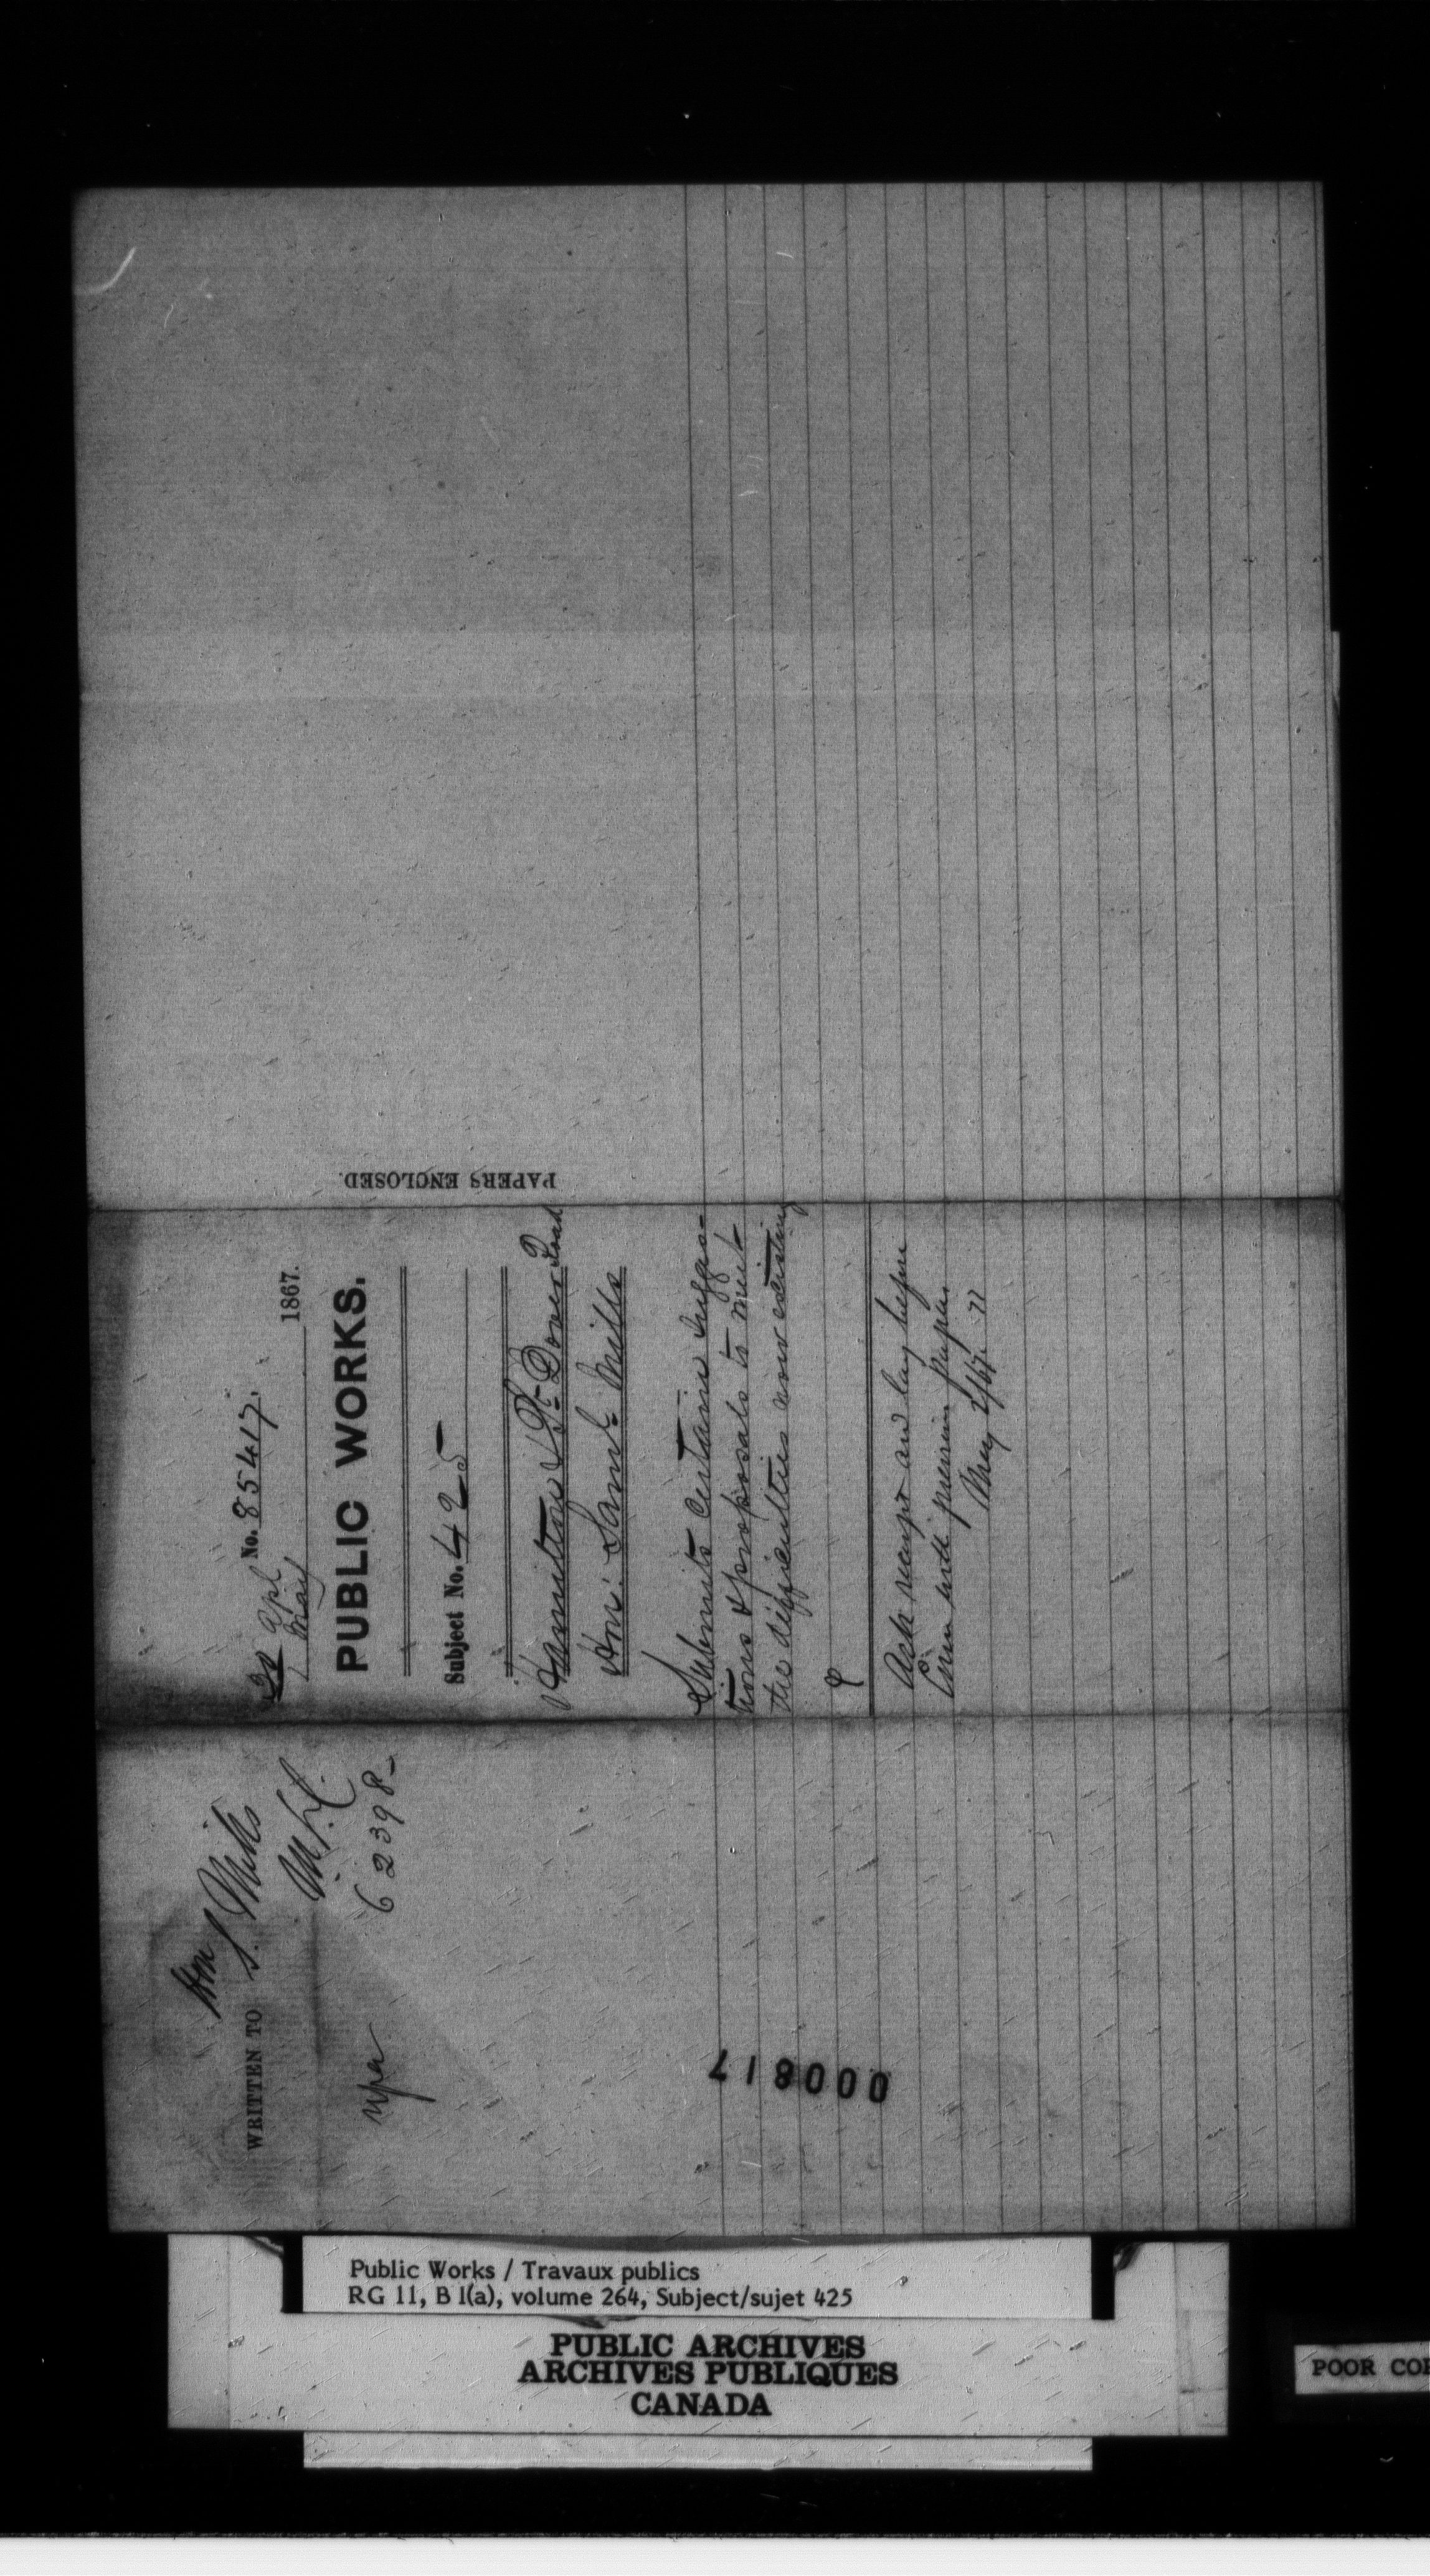 No. 85417.
30 Apl
1 May 1867.
PUBLIC WORKS.
Subject No. 425
Hamilton & Pt Dover Road
Hon: Saml Mills
Submits certain sugges-
tions & proposals to meet
the difficulties now existing
Ack receipt and lay before
with previous papers
May 2/67.
PAPERS ENCLOSED.
WRITTEN TO
Hon
S. Mills
M.L.C.
62398-
000817
Public Works / Travaux publics
RG 11, B 1(a), volume 264, Subject/sujet 425
PUBLIC ARCHIVES
ARCHIVES PUBLIQUES
CANADA
POOR COP